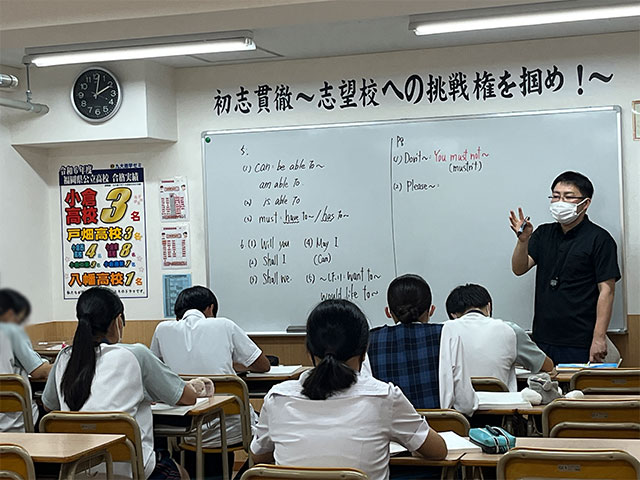 初志貫徹～志望校への挑戦権を掴め！～
5.
(1) can: be able to～
am able to
(2) is able to
(3) must have to～/has to～
6.(1) Will you
(2) Shall I
(3) Shall we
(4) May I
(Can)
(5) ～したい: want to～
would like to～
P8
(1) Don't～: You must not～
(mustn't)
(2) Please～
九大進学ゼミ
令和6年度
福岡県公立高校 合格実績
小倉高校 3名
戸畑高校 3名
4名 8名
八幡高校 1名